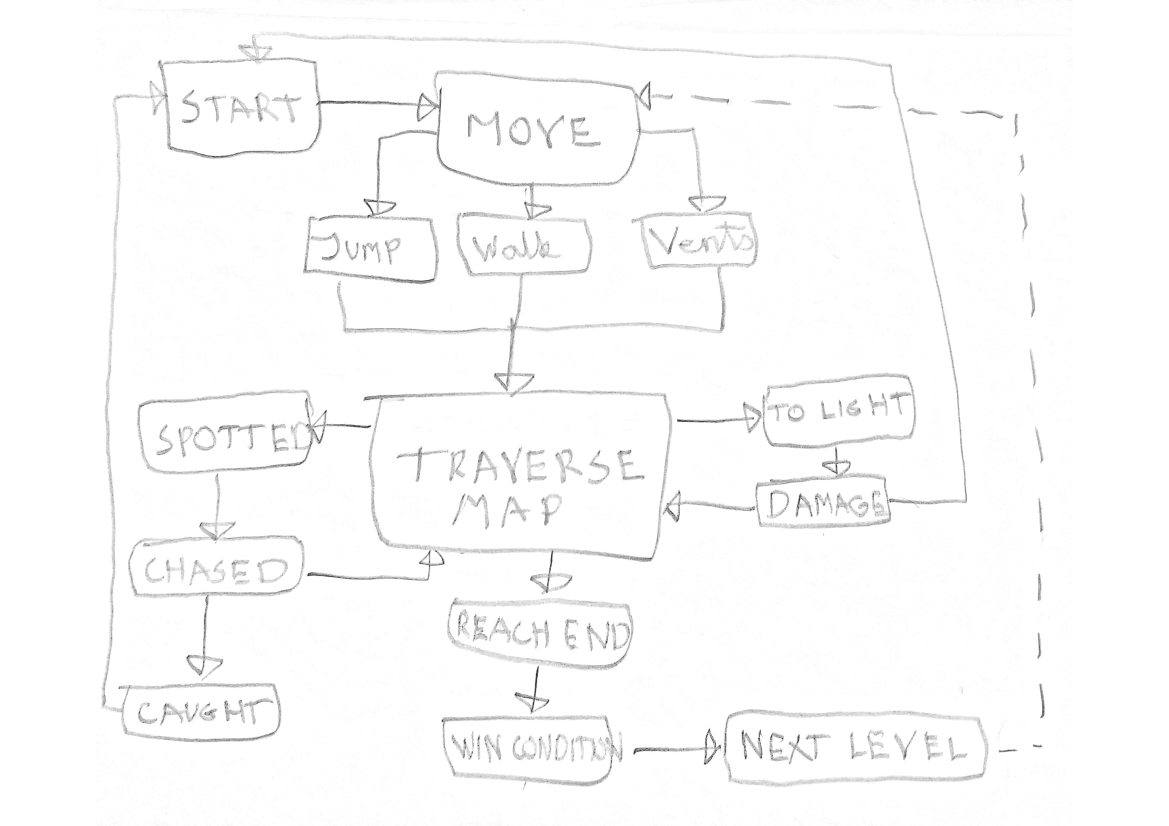 START
MOVE
JUMP
Walk
Vents
TO LIGHT
SPOTTED
TRAVERSE
MAP
DAMAGE
CHASED
REACH END
CAUGHT
WIN CONDITION
NEXT LEVEL